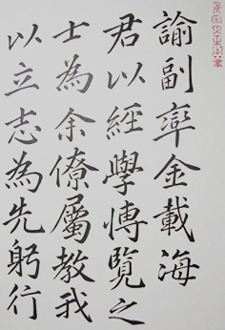 諭副率金載海
君以經學博覽之
士為余僚屬教我
以立志為先躬行